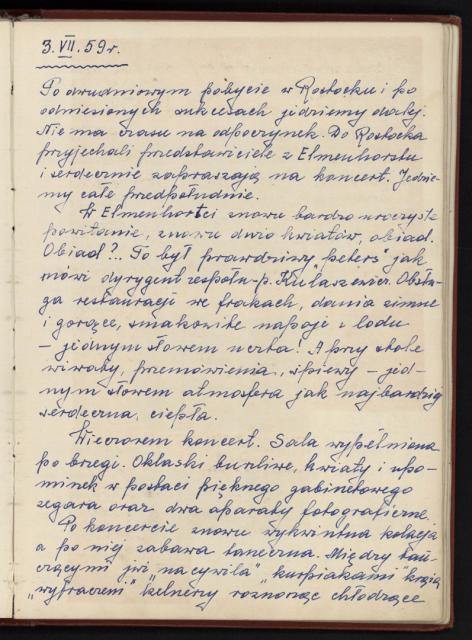 3.VII.59r.
Po dwudniowym pobycie w Rostocku i po
odniesionych sukcesach jedziemy dalej.
Nie ma czasu na odpoczynek. Do Rostocka
przyjechali przedstawiciele z Elmenhorstu
i serdecznie zapraszają na koncert. Jedzie-
my całe przedpołudnie.
W Elmenhorści znowu bardzo uroczyste
powitanie, znowu dużo kwiatów, obiad.
Obiad?... To był prawdziwy „peters" jak
mówi dyrygent zespołu - p. Kulaszewicz. Obsłu-
ga restauracji we frakach, dania zimne
i gorące, smakowite napoje z lodu
– jednym słowem uczta! A przy stole
wiwaty, przemówienia, śpiewy – jed-
nym słowem atmosfera jak najbardziej
serdeczna, ciepła.
Wieczorem koncert. Sala wypełniona
po brzegi. Oklaski burzliwe, kwiaty i upo-
minek w postaci pięknego gabinetowego
zegara oraz dwa aparaty fotograficzne.
Po koncercie znowu wykwintna kolacja
a po niej zabawa taneczna. Między tań-
czącymi już „na cywila" „kurpiakami" krążą
„wyfraczeni" kelnerzy roznosząc chłodzące